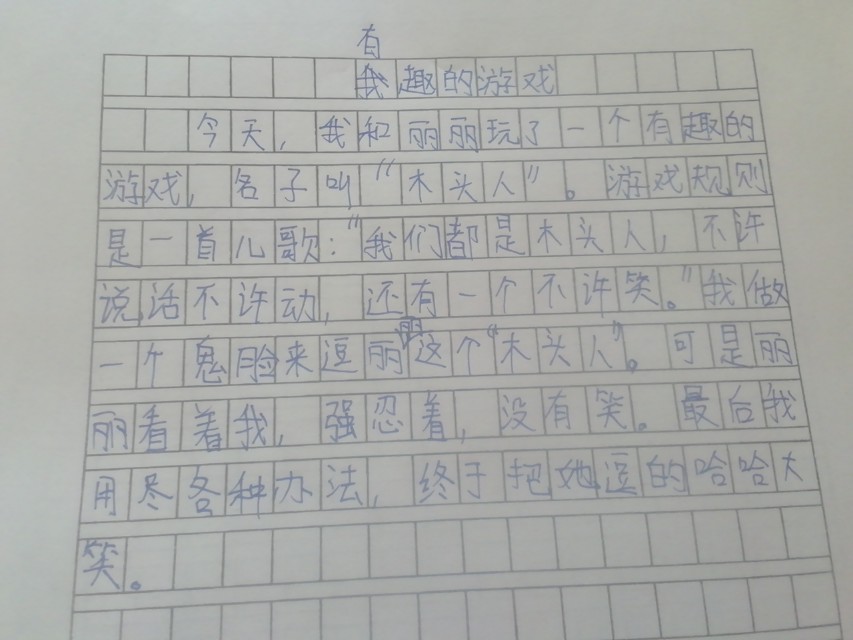 有趣的游戏
今天，我和丽丽玩了一个有趣的
游戏，名子叫“木头人”。游戏规则
是一首儿歌：“我们都是木头人，不许
说话不许动，还有一个不许笑。”我做
一个鬼脸来逗丽丽这个“木头人”。可是丽
丽看着我，强忍着，没有笑。最后我
用尽各种办法，终于把她逗的哈哈大
笑。